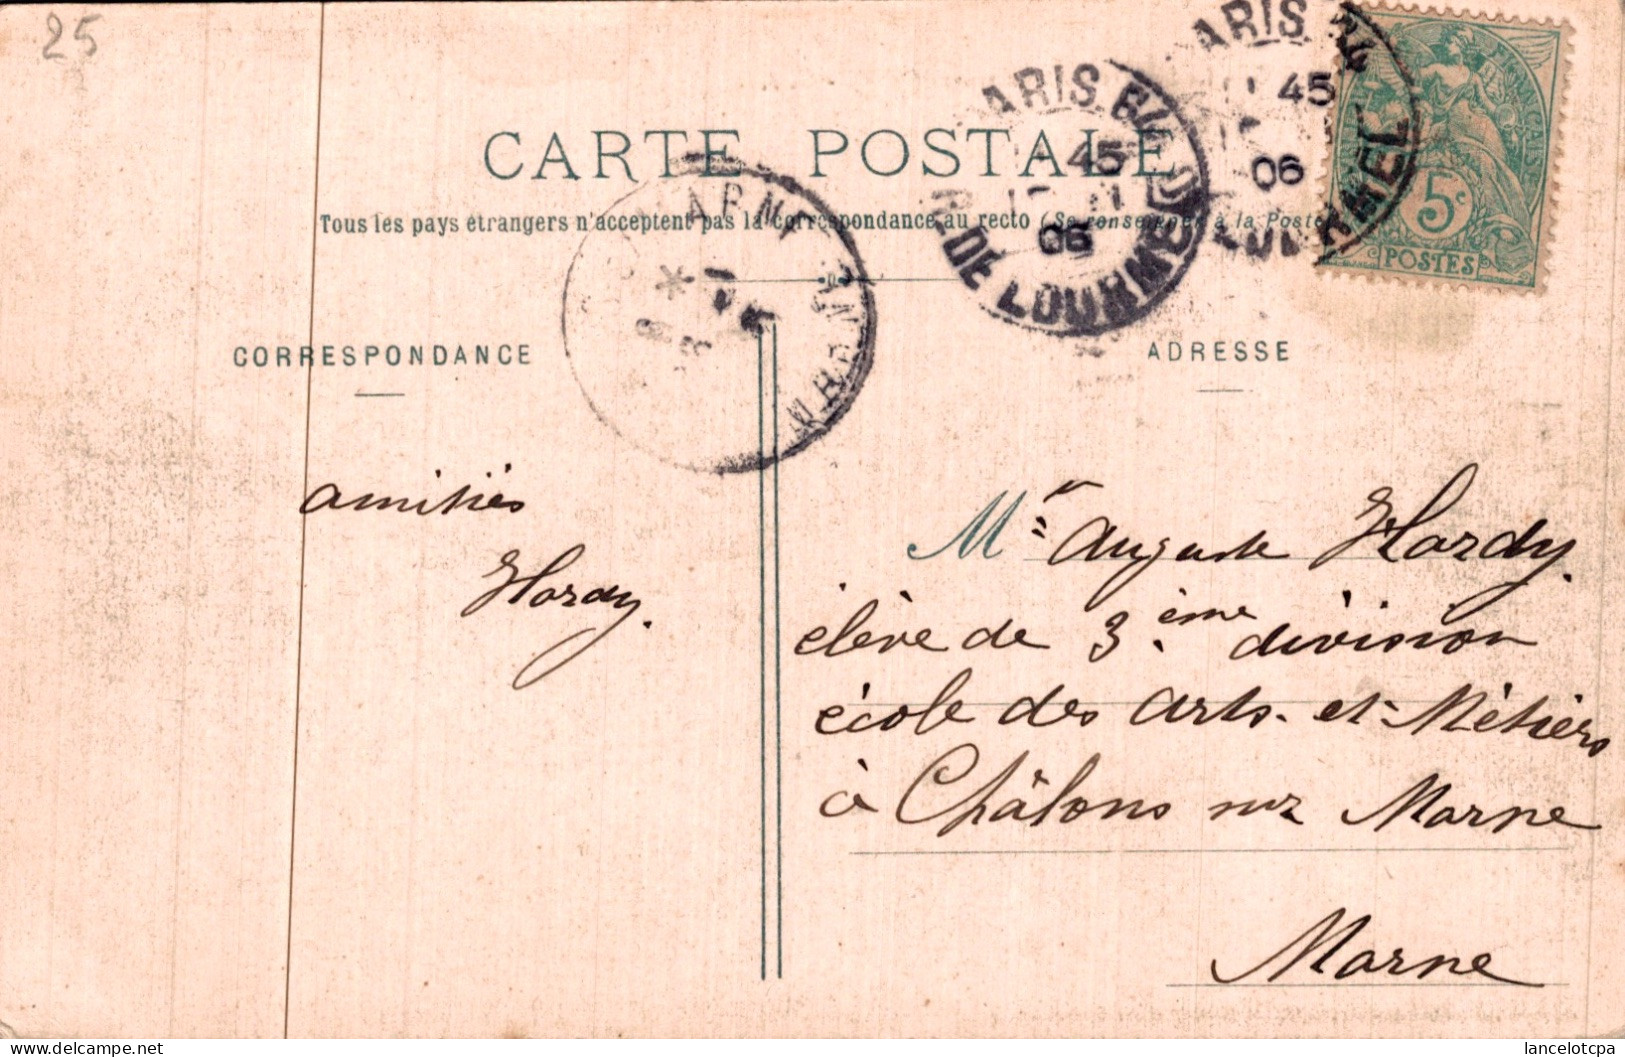 25
CARTE POSTALE
Tous les pays étrangers n'acceptent pas la correspondance au recto (Se renseigner à la Poste)
CORRESPONDANCE
ADRESSE
amitiés
Hardy.
Mr Auguste Hardy.
élève de 3.ème division
école des Arts. et Métiers
à Châlons sur Marne
Marne
ARIS
45
06
DE LOURMEL
ARIS
45
06
LOURMEL
FRANÇAISE
5c
POSTES
MARNE
lancelotcpa